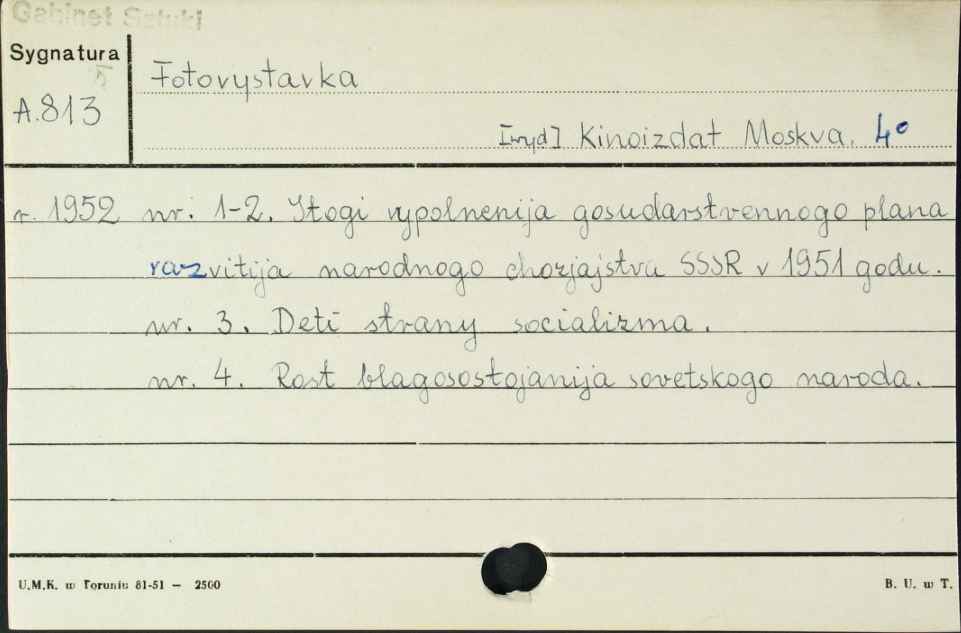 Gabinet Sztuki
Sygnatura
A.813
Fotovystavka
[wyd] Kinoizdat Moskva. 4°
r. 1952 nr. 1-2. Itogi vypolnenija gosudarstvennogo plana
razvitija narodnogo chozjajstva SSSR v 1951 godu.
nr. 3. Deti strany socializma.
nr. 4. Rost blagosostojanija sovetskogo naroda.
U.M.K. w Toruniu 81-51 — 2500
B. U. w T.